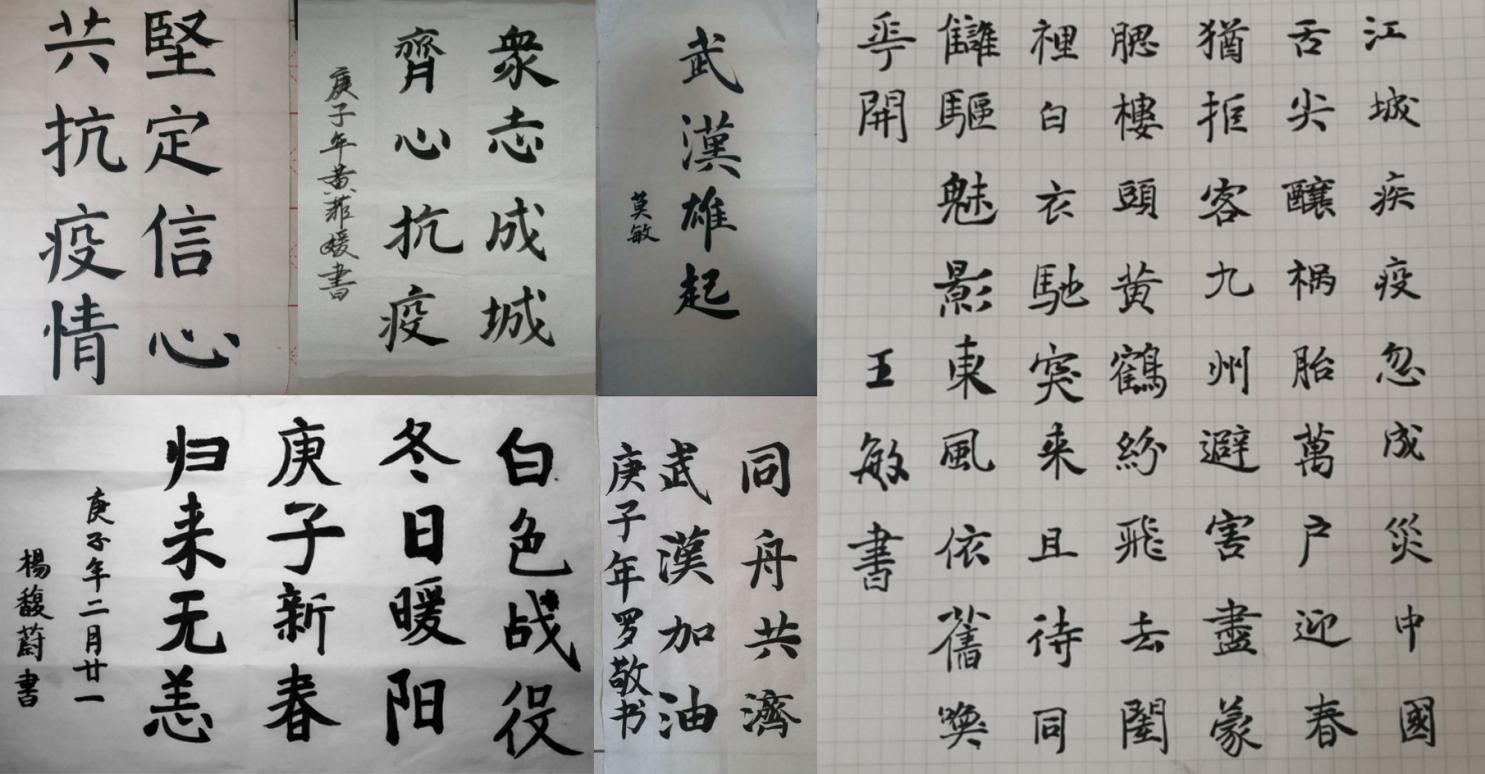 堅定信心
共抗疫情
衆志成城
齊心抗疫
庚子年黄菲媛書
武漢雄起
莫敏
江城疾疫忽成災中國
舌尖釀禍胎萬户迎春
猶拒客九州避害盡蒙
腮樓頭黄鶴紛飛去閨
裡白衣馳突来且待同
讎驅魅影東風依舊喚
開
王敏書
白色战役
冬日暖阳
庚子新春
归来无恙
庚子年二月廿一
楊馥蔚書
同舟共濟
武漢加油
庚子年罗敬书